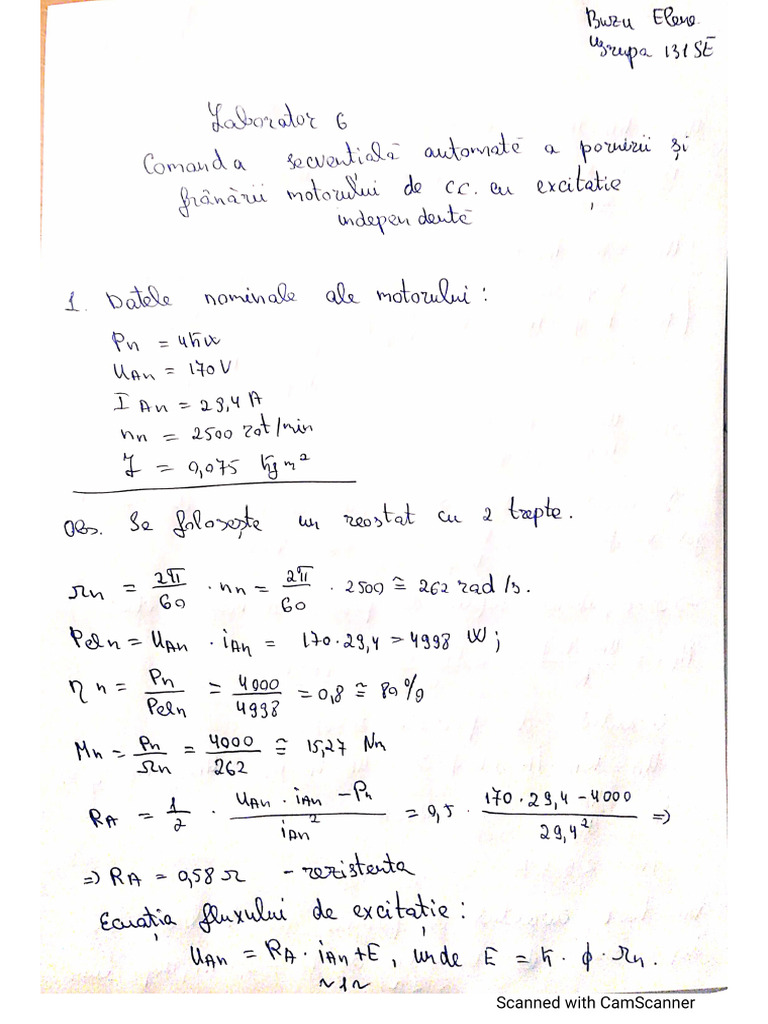 Buzu Elena
Grupa 131SE
Laborator 6
Comanda secvențială automată a pornirii și
frânării motorului de cc. cu excitație
independentă
1. Datele nominale ale motorului:
Pn = 4kW
UAn = 170V
IAn = 29,4 A
nn = 2500 rot/min
J = 0,075 kg m²
Obs. Se folosește un reostat cu 2 trepte.
Ωn = 2π/60 · nn = 2π/60 · 2500 ≅ 262 rad/s.
Peln = UAn · iAn = 170·29,4 = 4998 W;
ηn = Pn/Peln = 4000/4998 = 0,8 ≅ 80%
Mn = Pn/Ωn = 4000/262 ≅ 15,27 Nm
RA = 1/2 · (UAn · iAn - Pn)/iAn² = 0,5 · (170·29,4 - 4000)/29,4² =>
=> RA = 0,58 Ω - rezistenta
Ecuația fluxului de excitație:
UAn = RA · iAn + E, unde E = k · ϕ · Ωn.
~1~
Scanned with CamScanner